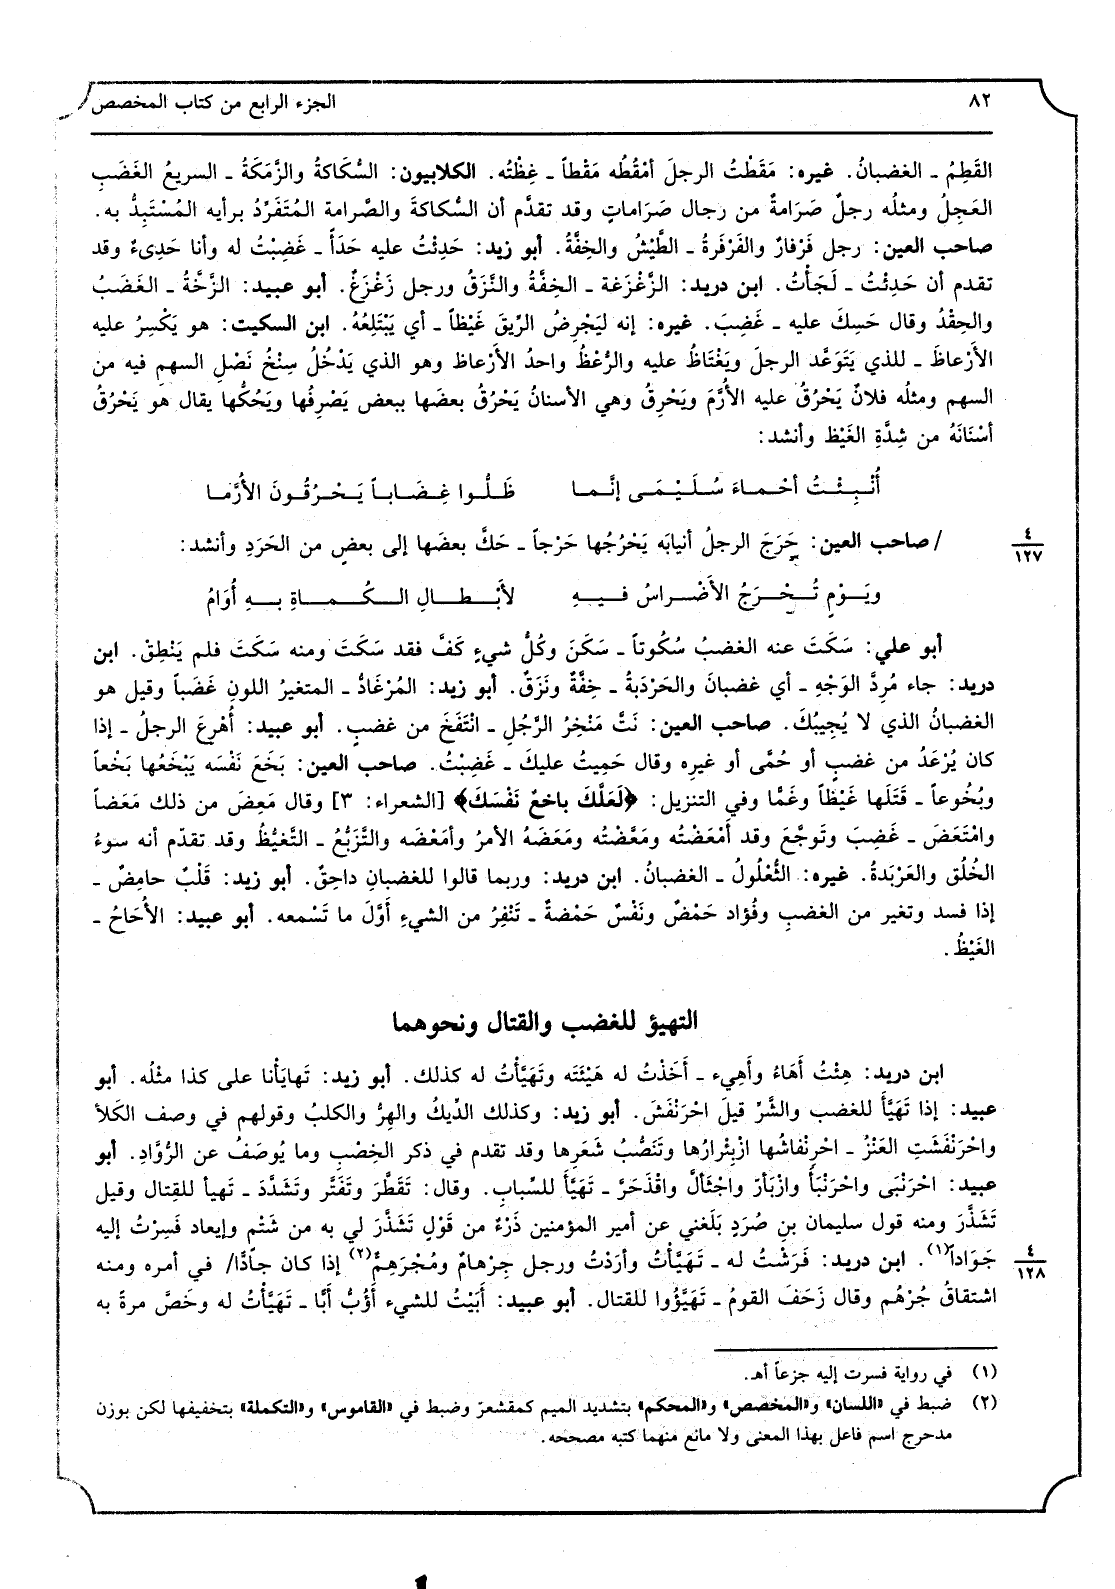 ٨٢
الجزء الرابع من كتاب المخصص
القَطِمُ ـ الغضبانُ. غيره: مَقَطْتُ الرجلَ أمْقُطُه مَقْطاً ـ غِظْتُه. الكلابيون: السُّكَاكةُ والزَّمَكَةُ ـ السريعُ الغَضَبِ
العَجِلُ ومثلُه رجلٌ صَرَامةٌ من رجال صَرَاماتٍ وقد تقدَّم أن السُّكاكةَ والصَّرامة المُتَفَرِّدُ برأيه المُسْتَبِدُّ به.
صاحب العين: رجل فَرْفارٌ والفَرْفرةُ ـ الطَّيْشُ والخِفَّةُ. أبو زيد: حَدِئْتُ عليه حَدَأً ـ غَضِبْتُ له وأنا حَدِىءٌ وقد
تقدم أن حَدِئْتُ ـ لَجَأْتُ. ابن دريد: الزَّغْزَغة ـ الخِفَّةُ والنَّزَقُ ورجل زَغْزَغٌ. أبو عبيد: الزَّخَّةُ ـ الغَضَبُ
والحِقْدُ وقال حَسِكَ عليه ـ غَضِبَ. غيره: إنه ليَجْرِضُ الرِّيقَ غَيْظاً ـ أي يَبْتَلِعُهُ. ابن السكيت: هو يَكْسِرُ عليه
الأَرْعاظَ ـ للذي يَتَوَعَّد الرجلَ ويَغْتَاظُ عليه والرُّعْظُ واحدُ الأَرْعاظ وهو الذي يَدْخُلُ سِنْخُ نَصْلِ السهم فيه من
السهم ومثلُه فلانٌ يَحْرُقُ عليه الأُرَّمَ ويَحْرِقُ وهي الأسنانُ يَحْرُقُ بعضَها ببعض يَصْرِفُها ويَحُكُّها يقال هو يَحْرُقُ
أسْنَانَهُ من شِدَّةِ الغَيْظ وأنشد:
أُنْبِئْتُ أحْماءَ سُلَيْمَى إنَّما ظَلُّوا غِضَاباً يَحْرُقُونَ الأُرَّما
/ صاحب العين: حَرَجَ الرجلُ أنيابَه يَحْرُجُها حَرْجاً ـ حَكَّ بعضَها إلى بعضٍ من الحَرَدِ وأنشد:
٤
١٢٧
ويَوْمٍ تُحْرَجُ الأَضْراسُ فيهِ لأَبْطالِ الكُماةِ بهِ أُوَامُ
أبو علي: سَكَتَ عنه الغضبُ سُكُوتاً ـ سَكَنَ وكُلُّ شيءٍ كَفَّ فقد سَكَتَ ومنه سَكَتَ فلم يَنْطِقْ. ابن
دريد: جاء مُرِدَّ الوَجْهِ ـ أي غضبانَ والحَرْدَبةُ ـ خِفَّةٌ ونَزَقٌ. أبو زيد: المُرْغَادُّ ـ المتغيرُ اللونِ غَضَباً وقيل هو
الغضبانُ الذي لا يُجِيبُكَ. صاحب العين: نَتَّ مَنْخِرُ الرَّجُلِ ـ انْتَفَخَ من غضبٍ. أبو عبيد: أُهْرِعَ الرجلُ ـ إذا
كان يُرْعَدُ من غضبٍ أو حُمَّى أو غيره وقال حَمِيتُ عليكَ ـ غَضِبْتُ. صاحب العين: بَخَعَ نَفْسَه يَبْخَعُها بَخْعاً
وبُخُوعاً ـ قَتَلَها غَيْظاً وغَمًّا وفي التنزيل: ﴿لَعَلَّكَ باخعٌ نَفْسَكَ﴾ [الشعراء: ٣] وقال مَعِضَ من ذلك مَعَضاً
وامْتَعَضَ ـ غَضِبَ وتَوجَّعَ وقد أمْعَضْتُه ومَعَّضْتُه ومَعَضَهُ الأمرُ وأمْعَضَه والتَّزَبُّعُ ـ التَّغيُّظُ وقد تقدّم أنه سوءُ
الخُلُق والعَرْبَدةُ. غيره: الثُّعْلُولُ ـ الغضبانُ. ابن دريد: وربما قالوا للغضبانِ داحِقٌ. أبو زيد: قَلْبٌ حامِضٌ ـ
إذا فسد وتغير من الغضبِ وفُؤاد حَمْضٌ ونَفْسٌ حَمْضةٌ ـ تَنْفِرُ من الشيءِ أوَّلَ ما تَسْمعه. أبو عبيد: الأُحَاحُ ـ
الغَيْظُ.
التهيؤ للغضب والقتال ونحوهما
ابن دريد: هِئْتُ أَهَاءُ وأَهِيء ـ أَخَذْتُ له هَيْئَته وتَهَيَّأْتُ له كذلك. أبو زيد: تَهايَأْنا على كذا مثْلُه. أبو
عبيد: إذا تَهَيَّأَ للغضب والشَّرِّ قيلَ احْرَنْفَشَ. أبو زيد: وكذلك الدِّيكُ والهِرُّ والكلبُ وقولهم في وصف الكَلأ
واحْرَنْفَشَتِ العَنْزُ ـ احْرِنْفاشُها ازْبِئْرارُها وتَنَصُّبُ شَعَرِها وقد تقدم في ذكر الخِصْبِ وما يُوصَفُ عن الرُّوَّادِ. أبو
عبيد: احْرَنْبَى واحْرَنْبَأَ وازْبَأَرّ واجْثَأَلَّ واقْذَحَرَّ ـ تَهَيَّأَ للسِّبابِ. وقال: تَقَطَّرَ وتَقَتَّر وتَشَذَّرَ ـ تَهيأ للقِتال وقيل
تَشَذَّرَ ومنه قول سليمان بنِ صُرَدٍ بَلَغني عن أمير المؤمنين ذَرْءٌ من قَوْلٍ تَشَذَّرَ لي به من شَتْمٍ وإيعاد فَسِرْتُ إليه
جَوَاداً(١). ابن دريد: فَرَشْتُ له ـ تَهَيَّأْتُ وأرَدْتُ ورجل جِرْهامٌ ومُجْرَهِمٌّ(٢) إذا كان جادًّا/ في أمره ومنه
٤
١٢٨
اشتقاقُ جُرْهُم وقال زَحَفَ القومُ ـ تَهَيَّؤوا للقتال. أبو عبيد: أَبَيْتُ للشيء أَؤُبُّ أبًّا ـ تَهَيَّأْتُ له وخَصَّ مرةً به
(١) في رواية فسرت إليه جزعاً أهـ.
(٢) ضبط في «اللسان» و«المخصص» و«المحكم» بتشديد الميم كمقشعرّ وضبط في «القاموس» و«التكملة» بتخفيفها لكن بوزن
مدحرج اسم فاعل بهذا المعنى ولا مانع منهما كتبه مصححه.